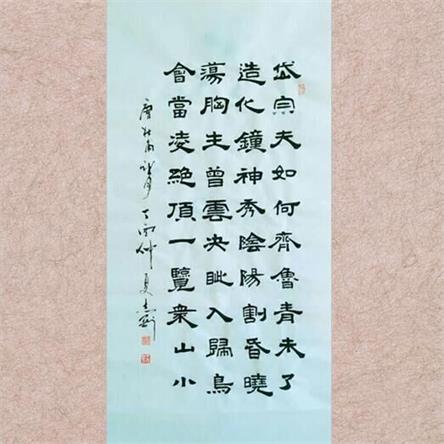 岱宗夫如何齊魯青未了
造化鐘神秀陰陽割昏曉
蕩胸生曾雲決眦入歸鳥
會當凌絕頂一覽衆山小
唐杜甫望 丁酉仲夏